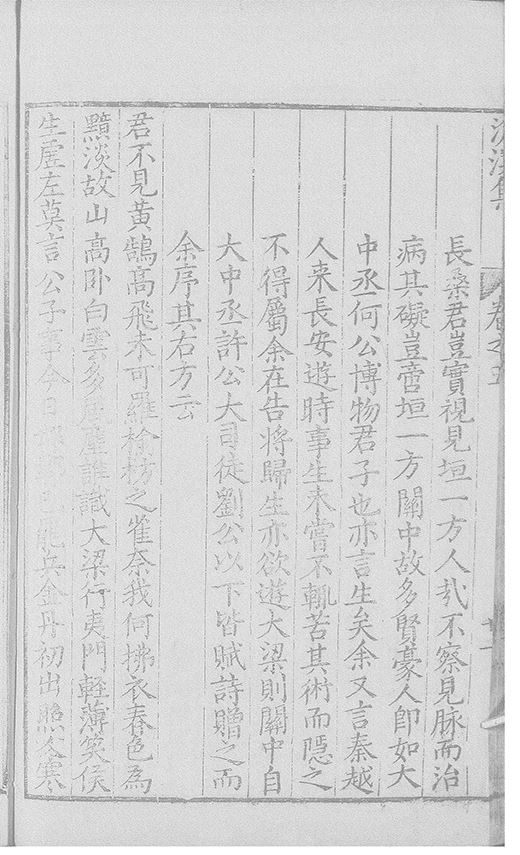 長桑君豈實視見垣一方人哉不察見脉而治
病其礙豈啻垣一方關中故多賢豪人即如大
中丞何公博物君子也亦言生矣余又言秦越
人来長安遊時事生未嘗不輒苦其術而隱之
不得屬余在告將歸生亦欲遊大梁則關中自
大中丞許公大司徒劉公以下皆賦詩贈之而
余序其右方云
君不見黄鵠高飛未可羅榆枋之雀奈我何拂衣春色為
黯淡故山高卧白雲多屠誰識大梁行夷門軽薄笑侯
生虛左莫言公子事今日能兵金丹初出照人寒